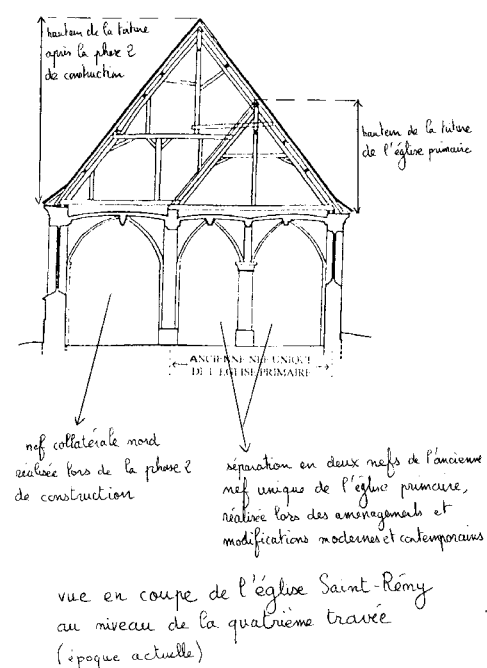 hauteur de la toiture
après la phase 2
de construction
hauteur de la toiture
de l'église primaire
ANCIENNE NEF UNIQUE
DE L'EGLISE PRIMAIRE
nef collatérale nord
réalisée lors de la phase 2
de construction
séparation en deux nefs de l'ancienne
nef unique de l'église primaire,
réalisée lors des aménagements et
modifications modernes et contemporains
vue en coupe de l'église Saint-Rémy
au niveau de la quatrième travée
(époque actuelle)